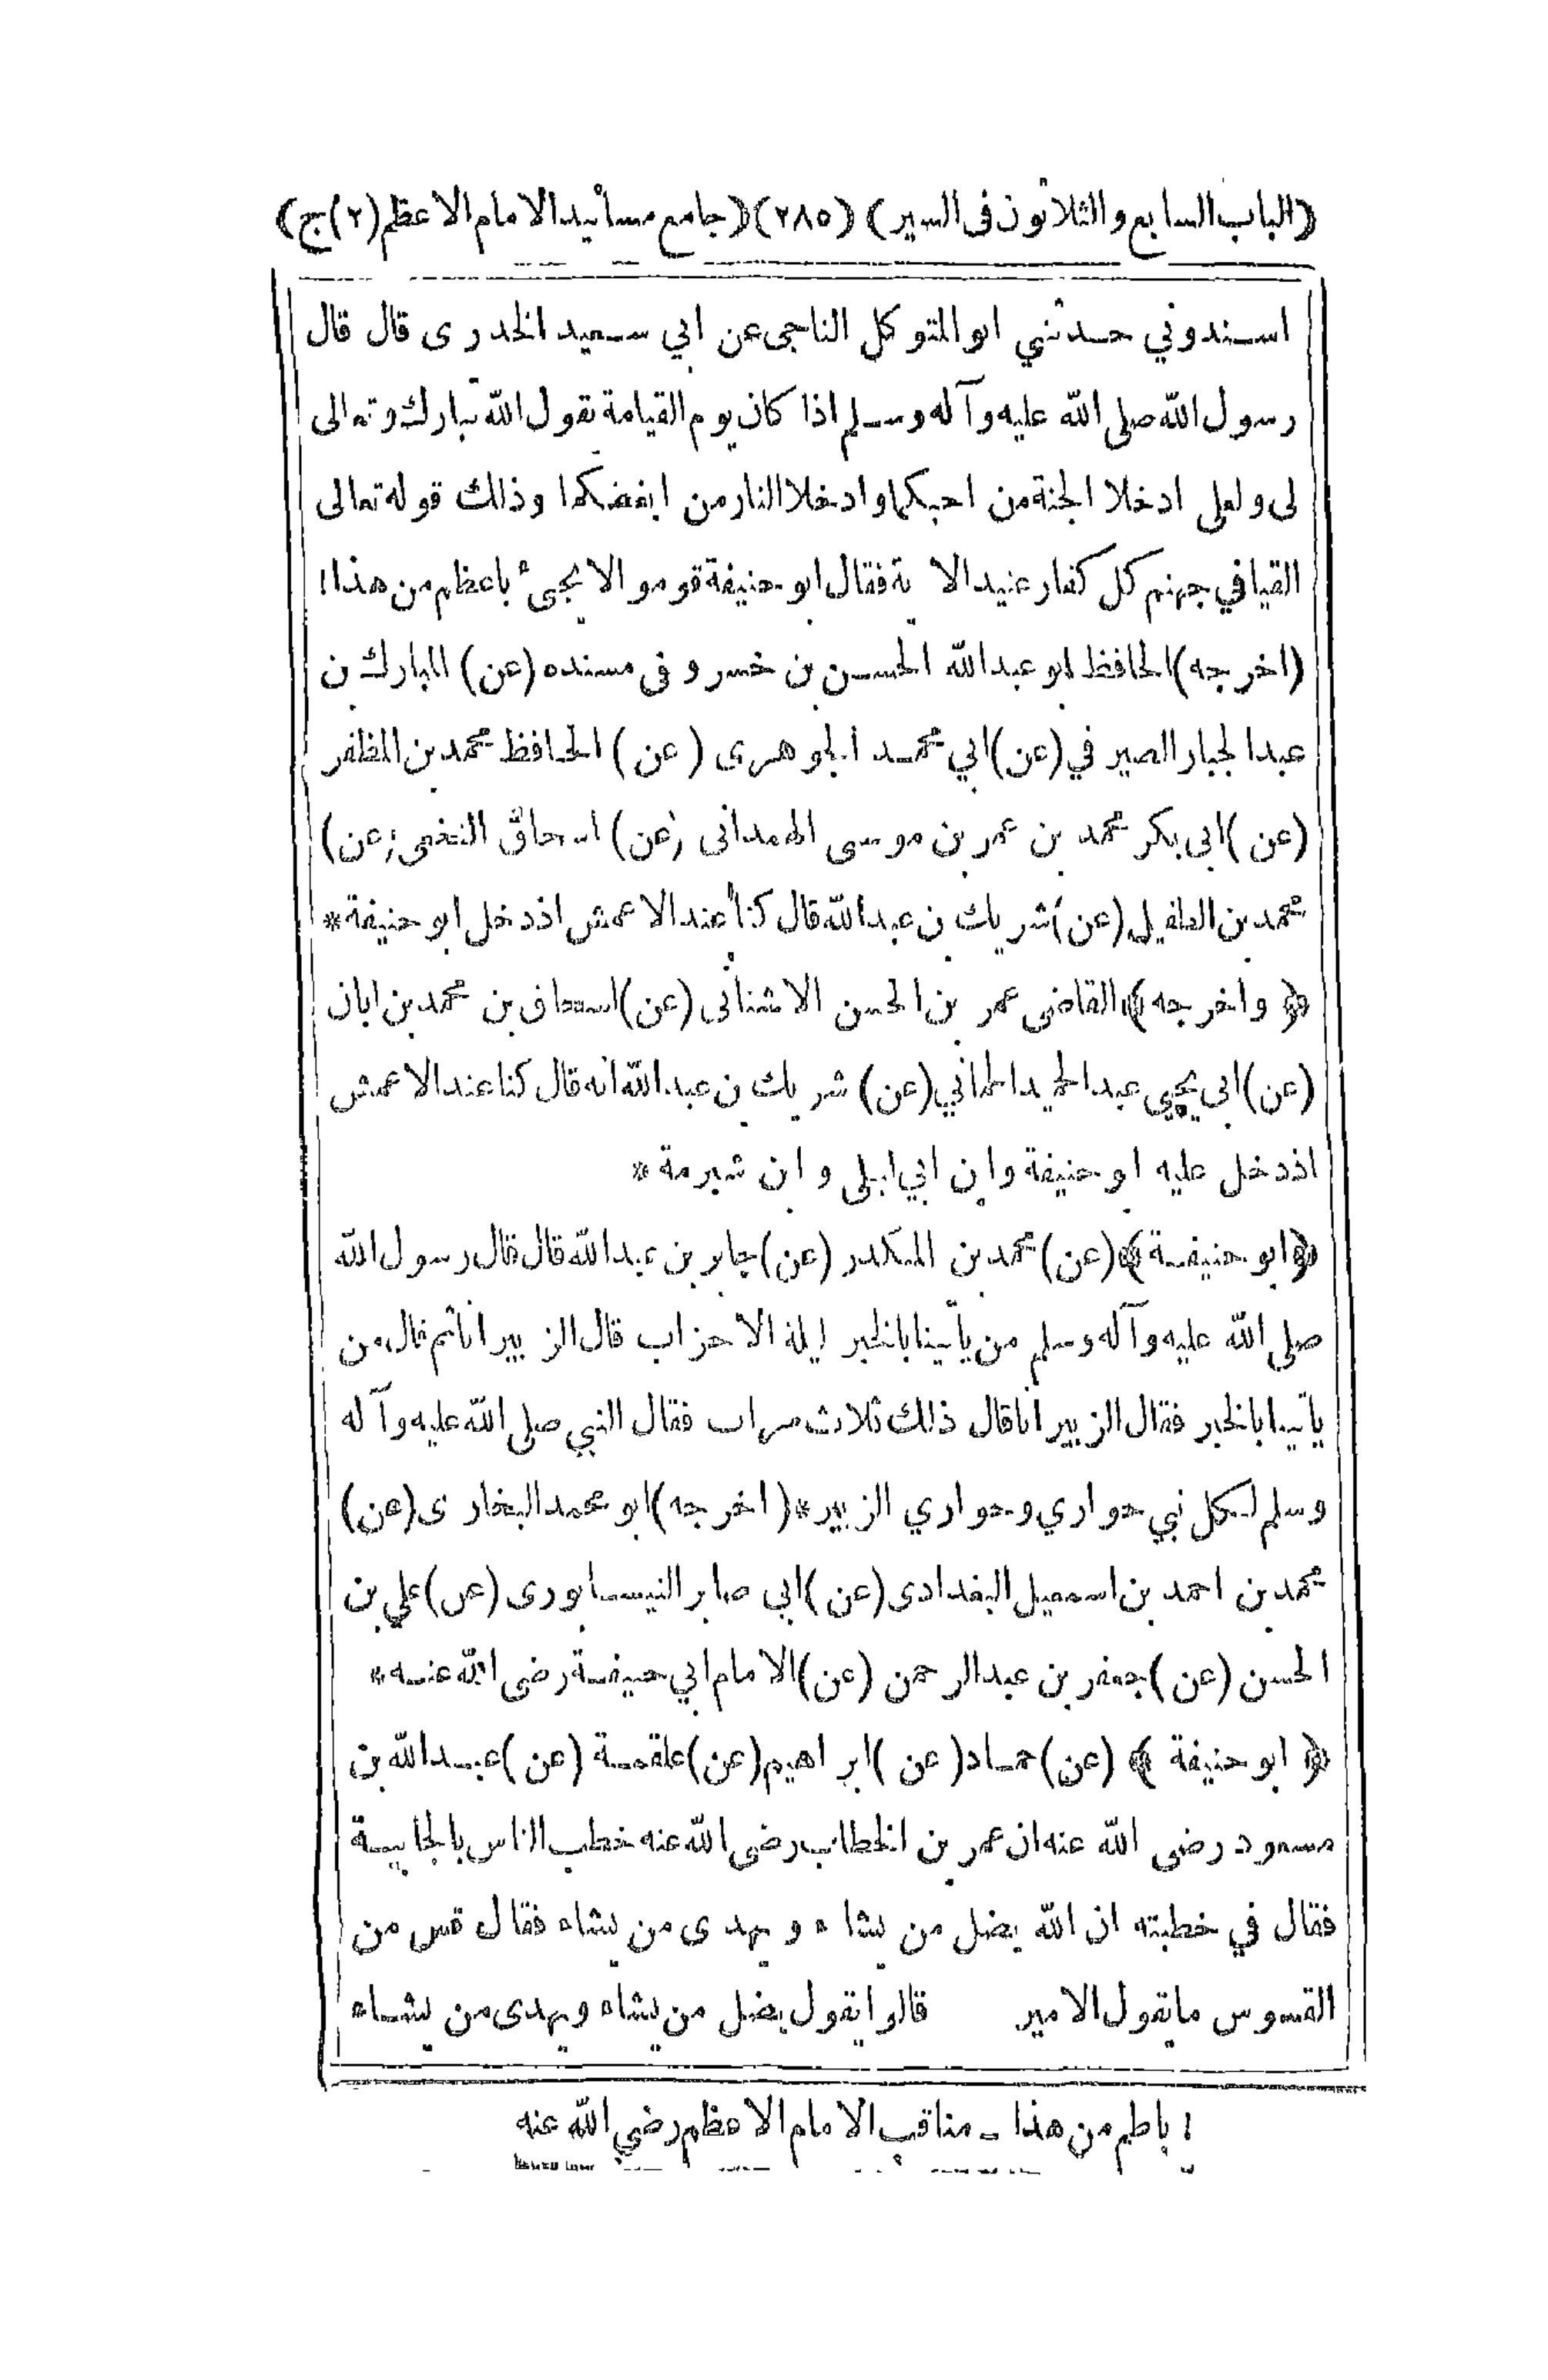 (الباب السابع والثلاثون فى السير) (٢٨٥) (جامع مسانيد الامام الاعظم (٢) ج)
اسندوني حدثني ابو المتوكل الناجى عن ابي سعيد الخدرى قال قال
رسول الله صلى الله عليه وآله وسلم اذا كان يوم القيامة يقول الله تبارك وتعالى
لى ولعلى ادخلا الجنة من احبكما وادخلا النار من ابغضكما وذلك قوله تعالى
القيا في جهنم كل كفار عنيد الاية فقال ابو حنيفة قوموا لا يجئ باعظم من هذا ١
(اخرجه) الحافظ ابو عبد الله الحسين بن خسرو فى مسنده (عن) المبارك بن
عبد الجبار الصيرفي (عن) ابي محمد الجوهرى (عن) الحافظ محمد بن المظفر
(عن) ابى بكر محمد بن عمر بن موسى الهمدانى (عن) اسحاق النخعى (عن)
محمد بن الطفيل (عن) شريك بن عبد الله قال كنا عند الاعمش اذ دخل ابو حنيفة *
﴿ واخرجه ﴾ القاضى عمر بن الحسن الاشنانى (عن) اسحاق بن محمد بن ابان
(عن) ابى يحيى عبد الحميد الحماني (عن) شريك بن عبد الله انه قال كنا عند الاعمش
اذ دخل عليه ابو حنيفة وابن ابي ليلى وابن شبرمة *
﴿ ابو حنيفة ﴾ (عن) محمد بن المنكدر (عن) جابر بن عبد الله قال قال رسول الله
صلى الله عليه وآله وسلم من يأتينا بالخبر ليلة الاحزاب قال الزبير انا ثم قال من
يأتينا بالخبر فقال الزبير انا قال ذلك ثلاث مرات فقال النبي صلى الله عليه وآله
وسلم لكل نبي حواري وحواري الزبير * (اخرجه) ابو محمد البخارى (عن)
محمد بن احمد بن اسمعيل البغدادى (عن) ابي صابر النيسابورى (عن) علي بن
الحسن (عن) جعفر بن عبد الرحمن (عن) الامام ابي حنيفة رضى الله عنه *
﴿ ابو حنيفة ﴾ (عن) حماد (عن) ابراهيم (عن) علقمة (عن) عبد الله بن
مسعود رضى الله عنه ان عمر بن الخطاب رضى الله عنه خطب الناس بالجابية
فقال في خطبته ان الله يضل من يشاء ويهدى من يشاء فقال قس من
القسوس ما يقول الامير قالوا يقول يضل من يشاء ويهدى من يشاء
١ باطم من هذا - مناقب الامام الاعظم رضي الله عنه